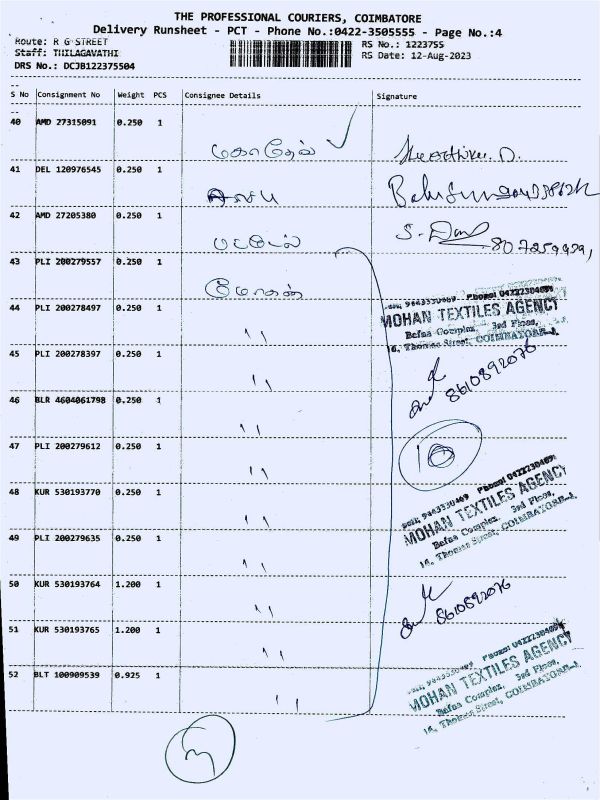 THE PROFESSIONAL COURIERS, COIMBATORE
Delivery Runsheet - PCT - Phone No.:0422-3505555 - Page No.:4
Route: R G STREET
RS No.: 1223755
Staff: THILAGAVATHI
RS Date: 12-Aug-2023
DRS No.: DCJB122375504
S No Consignment No Weight PCS Consignee Details Signature
40 AMD 27315091 0.250 1
மகாதேவ்
41 DEL 120976545 0.250 1
42 AMD 27205380 0.250 1
பட்டேல்
43 PLI 200279557 0.250 1
மோகன்
44 PLI 200278497 0.250 1 ''
MOHAN TEXTILES AGENCY
Befaa Complex, 3rd Floor,
16, Thomas Street, COIMBATORE-1.
45 PLI 200278397 0.250 1 ''
8610892076
46 BLR 4604061798 0.250 1 ''
10
47 PLI 200279612 0.250 1 ''
48 KUR 530193770 0.250 1 ''
MOHAN TEXTILES AGENCY
Befaa Complex, 3rd Floor,
16, Thomas Street, COIMBATORE-1.
49 PLI 200279635 0.250 1 ''
50 KUR 530193764 1.200 1 ''
8610892076
51 KUR 530193765 1.200 1 ''
52 BLT 100909539 0.925 1 ''
MOHAN TEXTILES AGENCY
Befaa Complex, 3rd Floor,
16, Thomas Street, COIMBATORE-1.